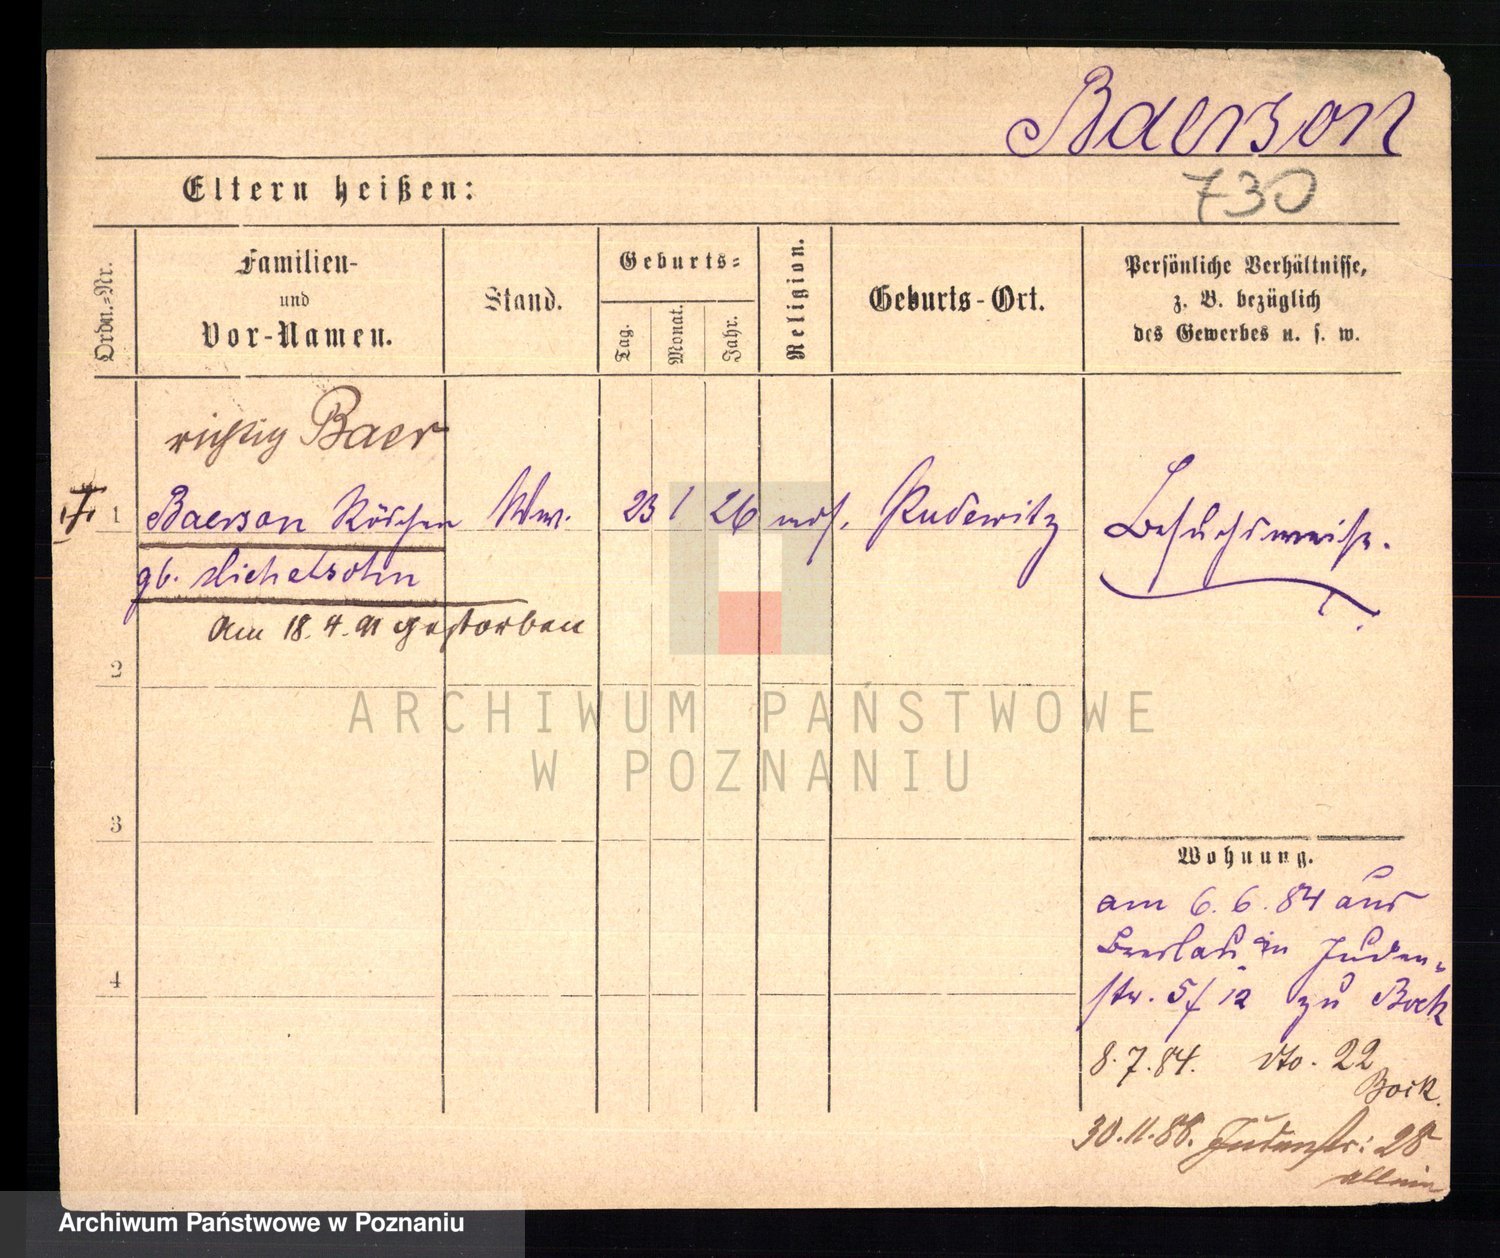 Baerson
730
Eltern heißen:
Ordn.-Nr.
Familien-
und
Vor-Namen.
Stand.
Geburts-
Tag.
Monat.
Jahr.
Religion.
Geburts-Ort.
Persönliche Verhältnisse,
z. B. bezüglich
des Gewerbes u. s. w.
richtig Baer
1 Baerson Röschen Ww. 23 1 26 mos. Pudewitz Besuchsweise.
gb. Michelsohn
Am 18.4.91 gestorben
2
ARCHIWUM PAŃSTWOWE
W POZNANIU
3
Wohnung.
am 6.6.84 aus
Breslau in Juden-
4
str. 5/12 zu Bock
8.7.84. dto. 22
Bock.
30.11.86. Judenstr: 28
allein
Archiwum Państwowe w Poznaniu